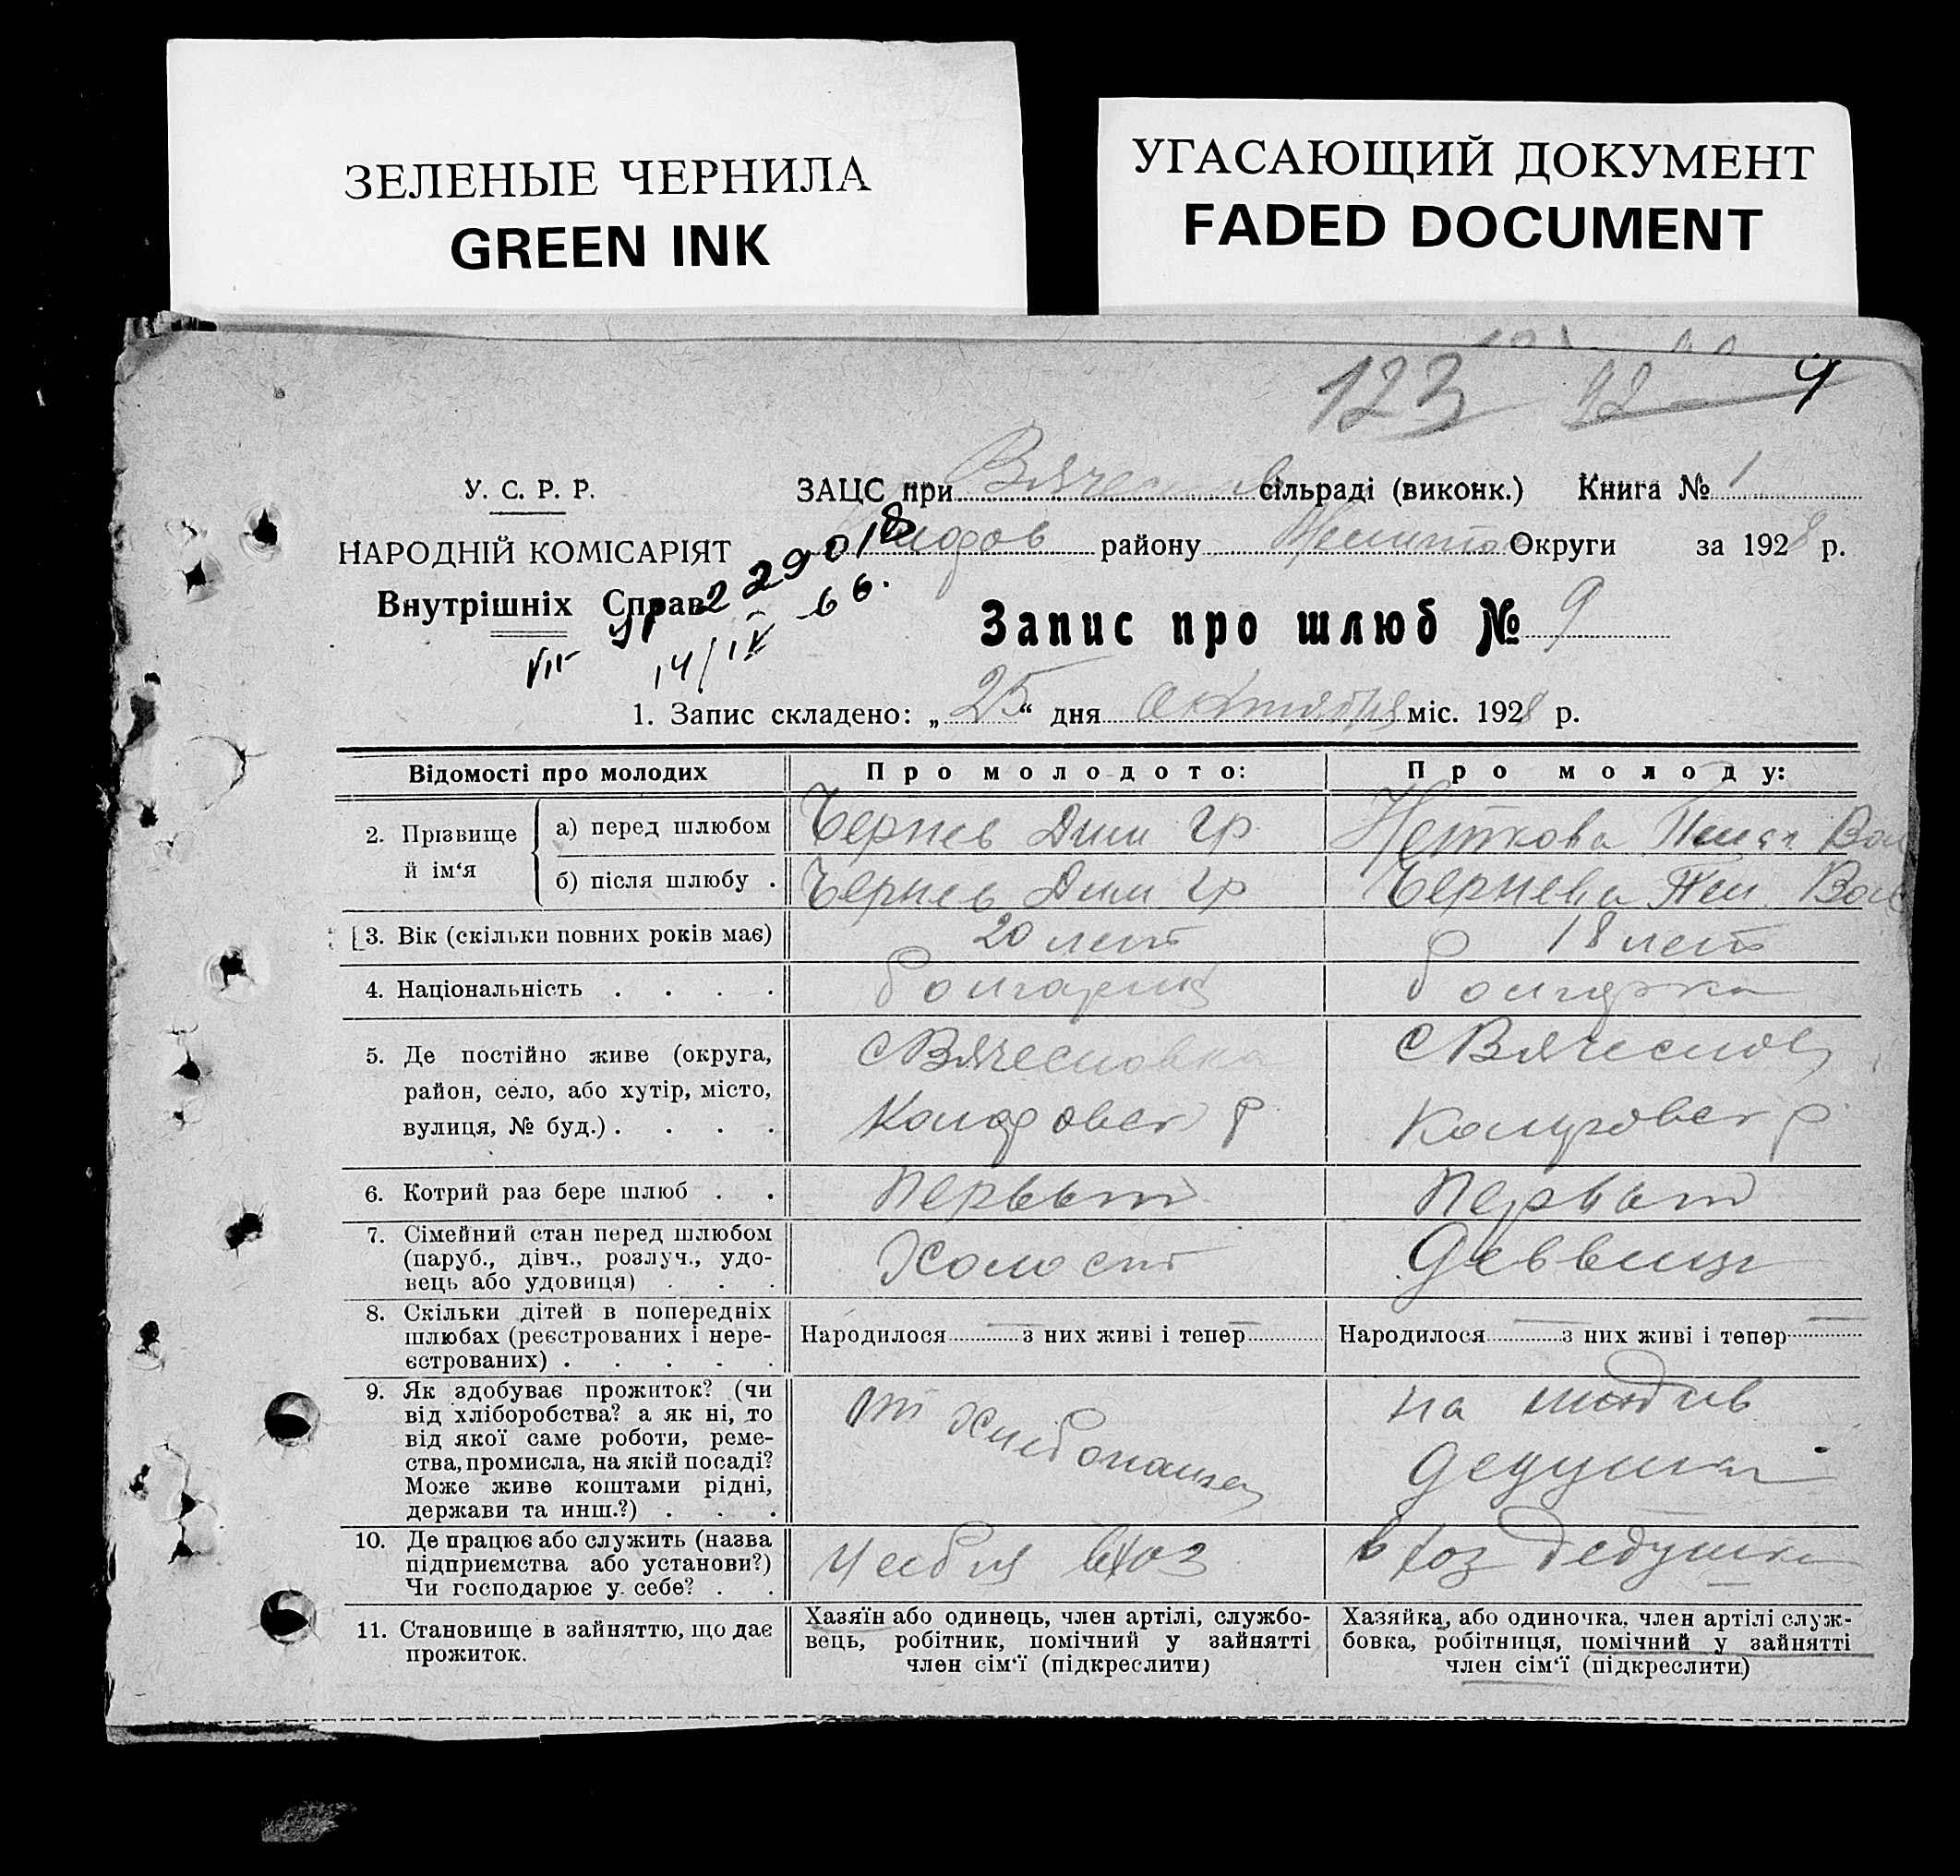 ЗЕЛЕНЫЕ ЧЕРНИЛА
GREEN INK
УГАСАЮЩИЙ ДОКУМЕНТ
FADED DOCUMENT
123 4
У. С. Р. Р.
НАРОДНІЙ КОМІСАРІЯТ
Внутрішніх Справ
ЗАЦС при Вячеслав сільраді (виконк.) Книга № 1
району Округи за 1928 р.
14/IV 66.
Запис про шлюб № 9
1. Запис складено: „25“ дня октября міс. 1928 р.
Відомості про молодих
Про молодого:
Про молоду:
2. Прізвище й ім‘я
а) перед шлюбом
Чернев Дим гр
Неткова Вас
б) після шлюбу .
Чернев Дим гр
Чернева Вас
3. Вік (скільки повних років має)
20 лет
18 лет
4. Національність . . . .
болгарин
болгарка
5. Де постійно живе (округа,
район, село, або хутір, місто,
вулиця, № буд.) . . . .
с Вячесловка
р
с Вячеслов
р
6. Котрий раз бере шлюб . .
Первый
Первый
7. Сімейний стан перед шлюбом
(паруб., дівч., розлуч., удо-
вець або удовиця) . . .
Холост
8. Скільки дітей в попередніх
шлюбах (реєстрованих і нере-
єстрованих) . . . . .
Народилося — з них живі і тепер —
Народилося — з них живі і тепер —
9. Як здобуває прожиток? (чи
від хліборобства? а як ні, то
від якої саме роботи, реме-
ства, промисла, на якій посаді?
Може живе коштами рідні,
держави та инш.?) . . .
от
на
дедушки
10. Де працює або служить (назва
підприємства або установи?)
Чи господарює у себе? . .
у себя в хоз
в хоз дедушки
11. Становище в зайняттю, що дає
прожиток.
Хазяїн або одинець, член артілі, службо-
вець, робітник, помічний у зайнятті
член сім‘ї (підкреслити)
Хазяйка, або одиночка, член артілі служ-
бовка, робітниця, помічний у зайнятті
член сім‘ї (підкреслити)